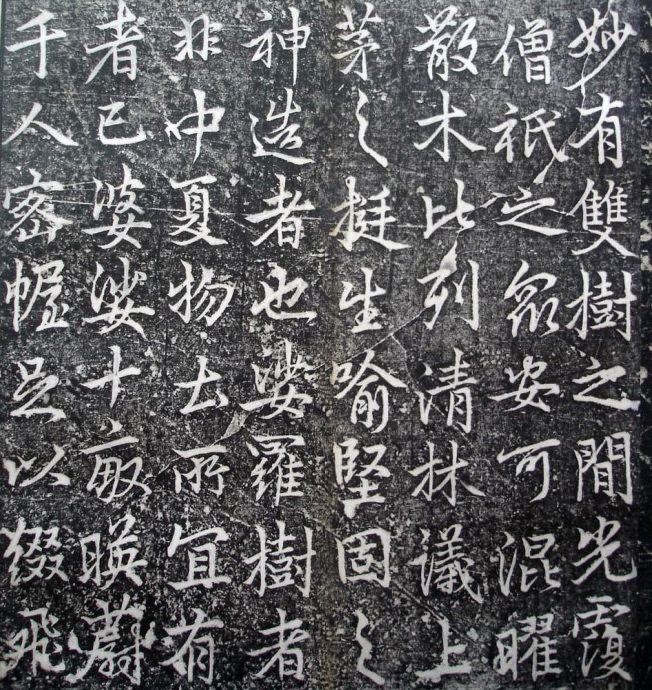 妙有雙樹之間光覆
僧祇之眾安可混曜
散木比列清林議上
茅之挺生喻堅固之
神造者也娑羅樹者
非中夏物土所宜有
者已婆娑十畝暎蔚
千人密幄足以綴飛